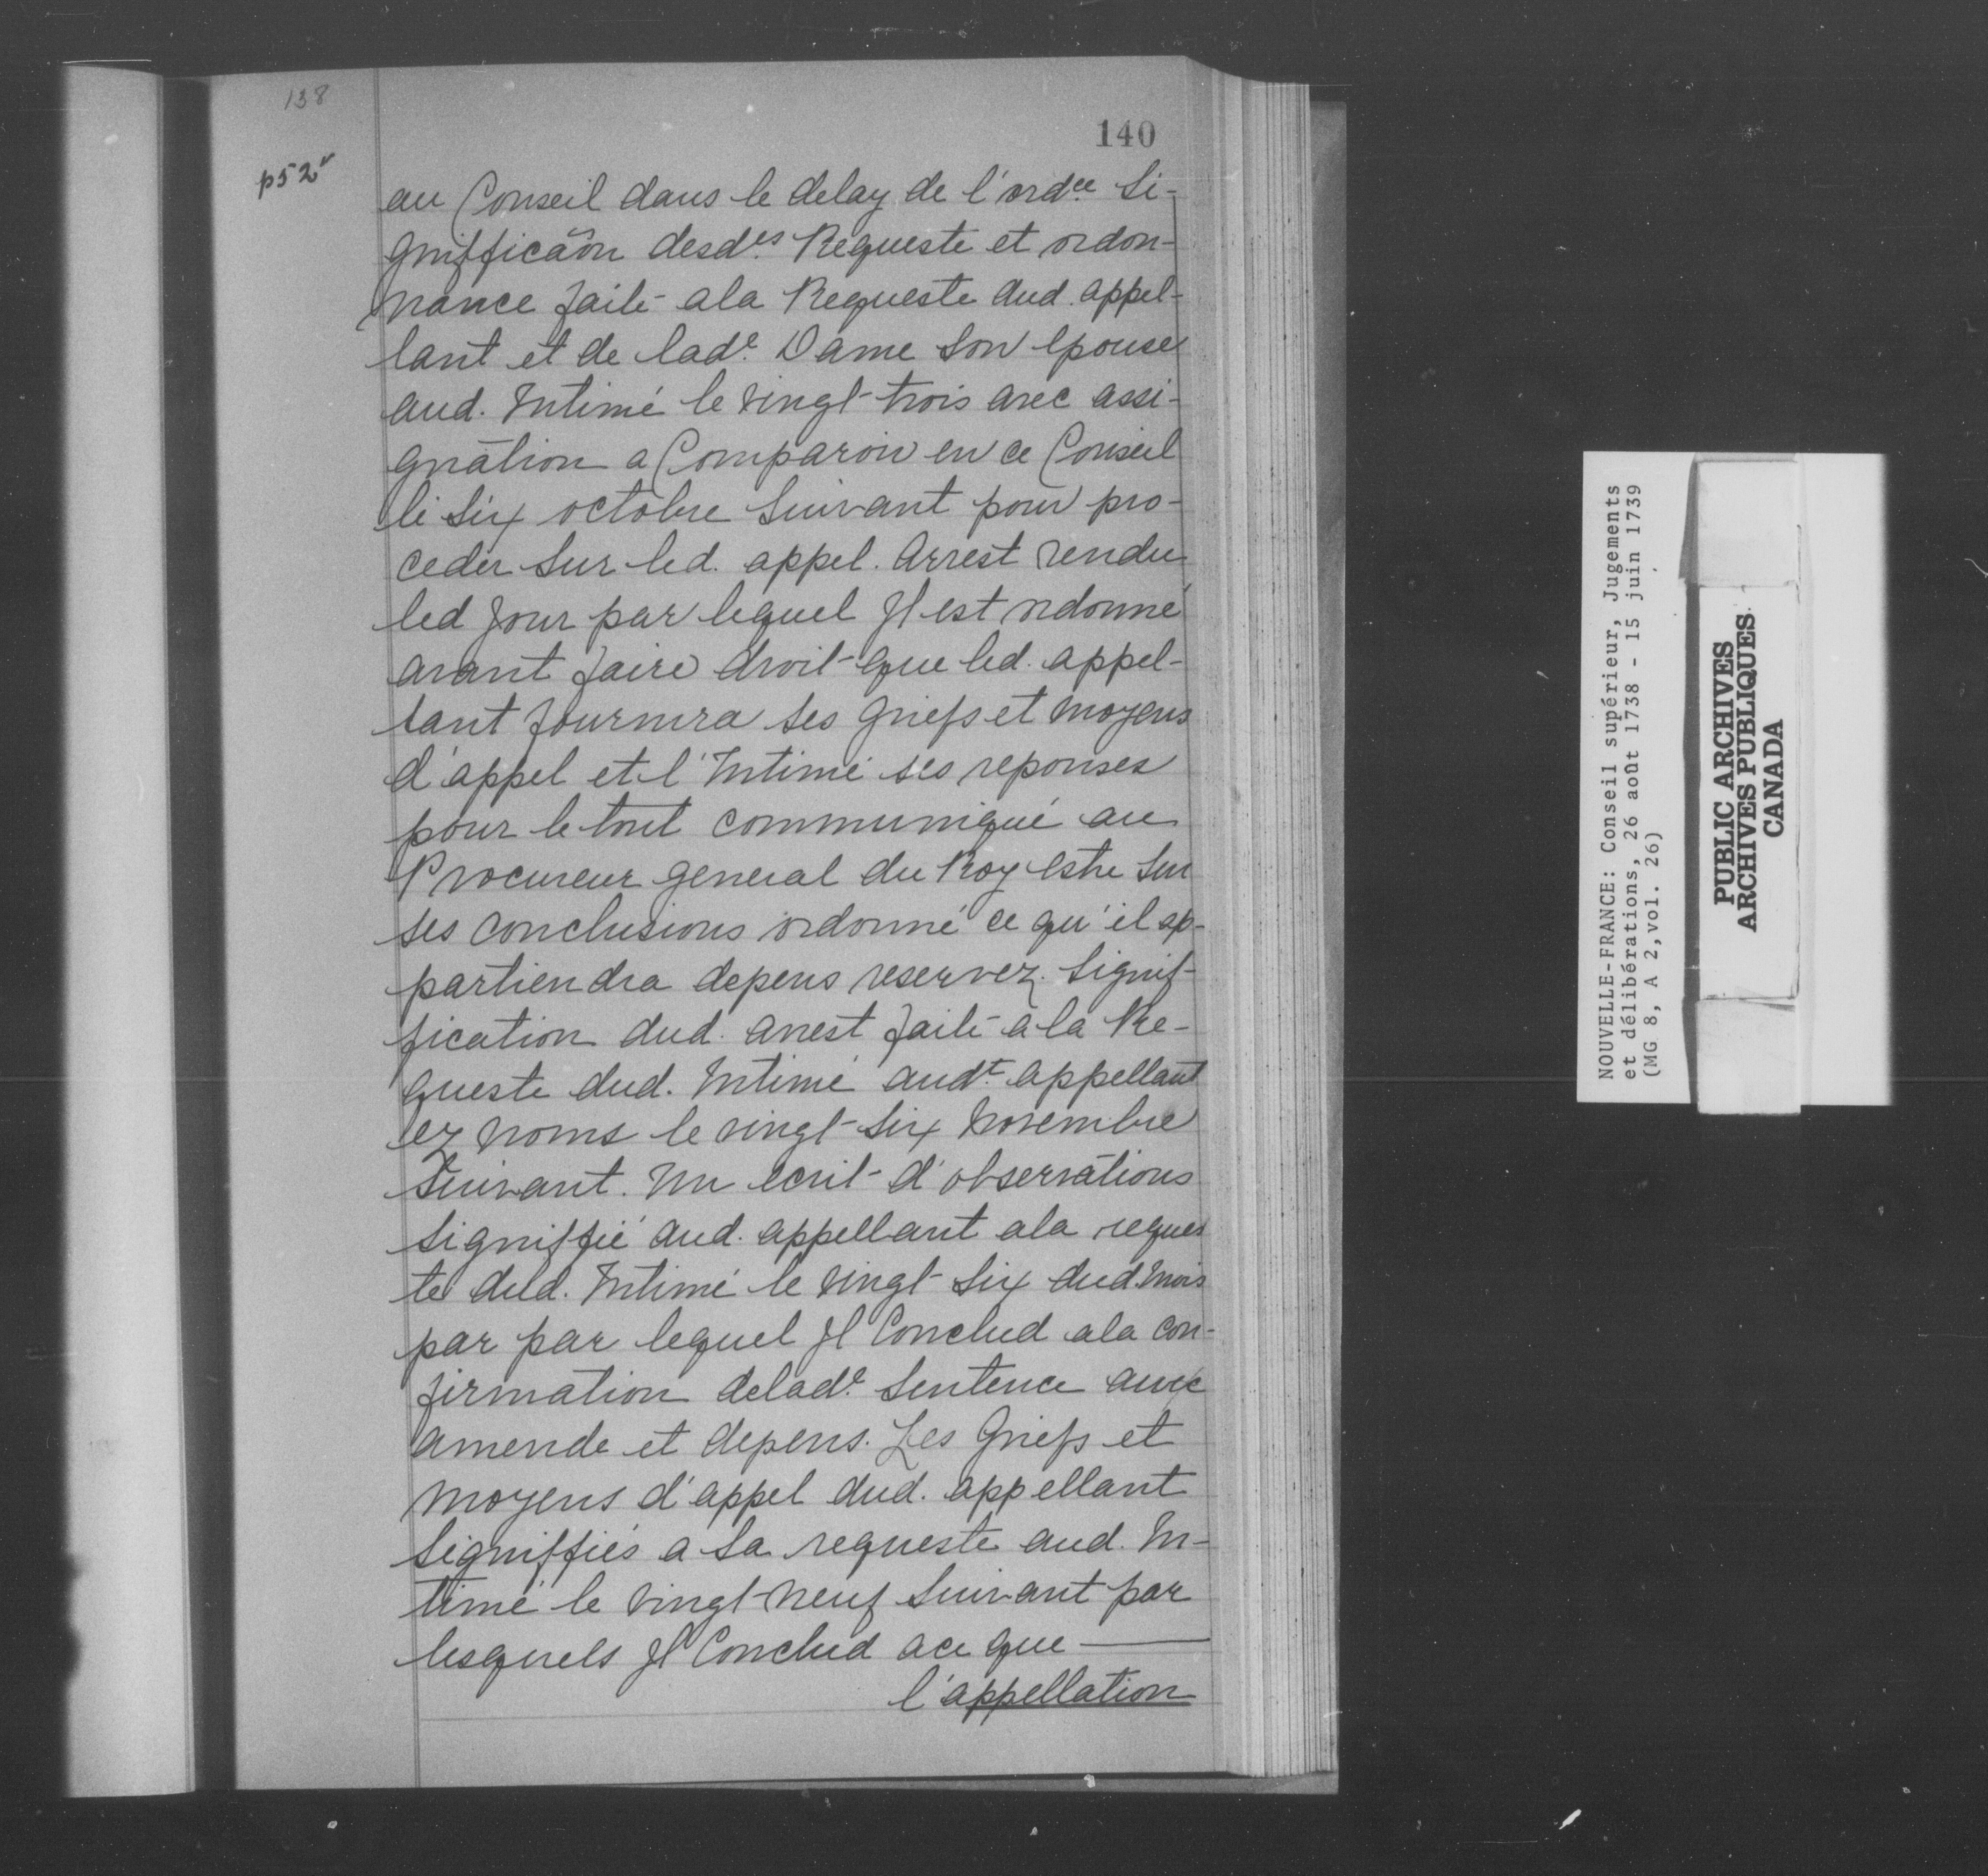 138
140
p52v
au Conseil dans le delay de l'ordce Si-
gnifficaôn desdes Requeste et ordon-
nance faite a la Requeste dud. appel-
lant et de lade. Dame son epouse
aud. Intimé le vingt-trois avec assi-
gnation a Comparoir en ce Conseil
le six octobre suivant pour pro-
ceder sur led. appel. Arrest rendu
led jour par lequel Jl est ordonné
avant faire droit que led. appel-
lant fournira ses griefs et moyens
d'appel et l'Intimé ses reponses
pour le tout communiqué au
Procureur general du Roy estre sur
ses conclusions ordonné ce qu'il ap-
partiendra depens reservez. Signif-
fication dud. arrest faite à la Re-
queste dud. Intimé audt. appellant
ez noms le vingt-six Novembre
suivant. Un ecrit d'observations
signiffié aud. appellant a la reques
te dud. Intimé le vingt-six dud. mois
par par lequel Jl Conclud a la con-
firmation de lade. Sentence avec
amende et depens. Les Griefs et
moyens d'appel dud. appellant
signiffiés a sa requeste aud. In-
timé le vingt-neuf suivant par
lesquels Jl Conclud a ce que
l'appellation
NOUVELLE-FRANCE: Conseil supérieur, Jugements
et délibérations, 26 août 1738 - 15 juin 1739
(MG 8, A 2,vol. 26)
PUBLIC ARCHIVES
ARCHIVES PUBLIQUES
CANADA